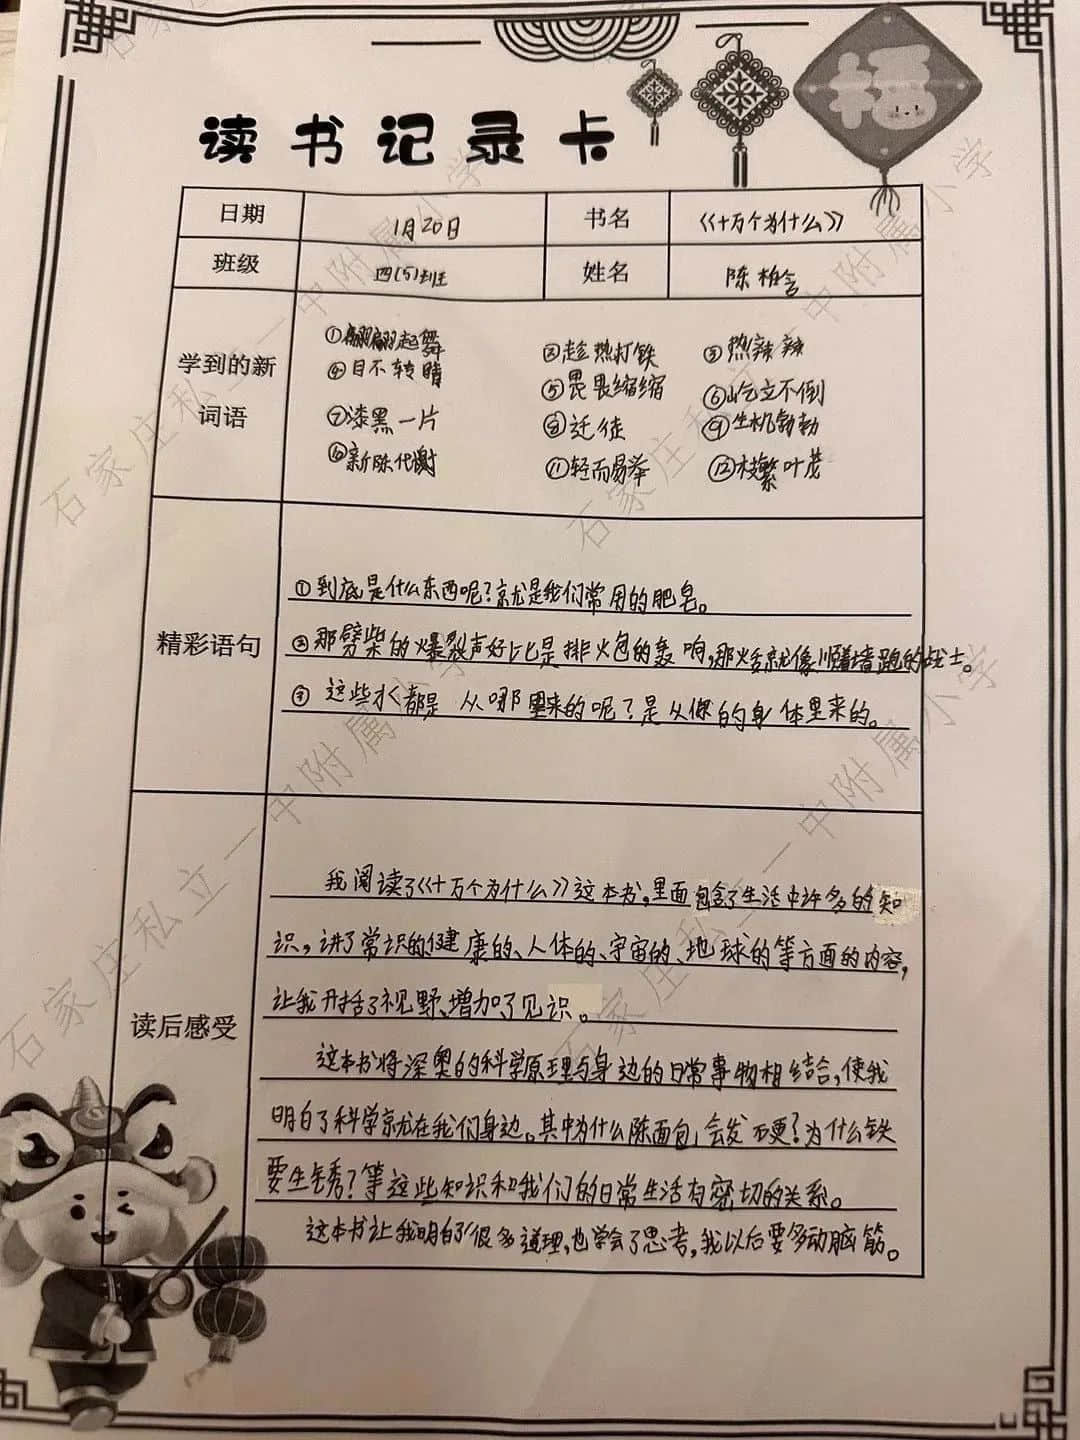 福
读书记录卡
日期 1月20日 书名 《十万个为什么》
班级 四(5)班 姓名 陈柏含
学到的新词语
①翩翩起舞 ②趁热打铁 ③热辣辣
④目不转睛 ⑤畏畏缩缩 ⑥屹立不倒
⑦漆黑一片 ⑧迁徒 ⑨生机勃勃
⑩新陈代谢 ⑪轻而易举 ⑫枝繁叶茂
精彩语句
①到底是什么东西呢?就是我们常用的肥皂。
②那劈柴的爆裂声好比是排火包的轰响,那火焰就像顺着墙跑的战士。
③这些水都是从哪里来的呢?是从你的身体里来的。
读后感受
我阅读了《十万个为什么》这本书,里面包含了生活中许多的知
识,讲了常识的健康的、人体的、宇宙的、地球的等方面的内容,
让我开括了视野、增加了见识。
这本书将深奥的科学原理与身边的日常事物相结合,使我
明白了科学就在我们身边。其中为什么陈面包,会发硬?为什么铁
要生锈?等这些知识和我们的日常生活有密切的关系。
这本书让我明白了很多道理,也学会了思考,我以后要多动脑筋。
石家庄私立一中附属小学